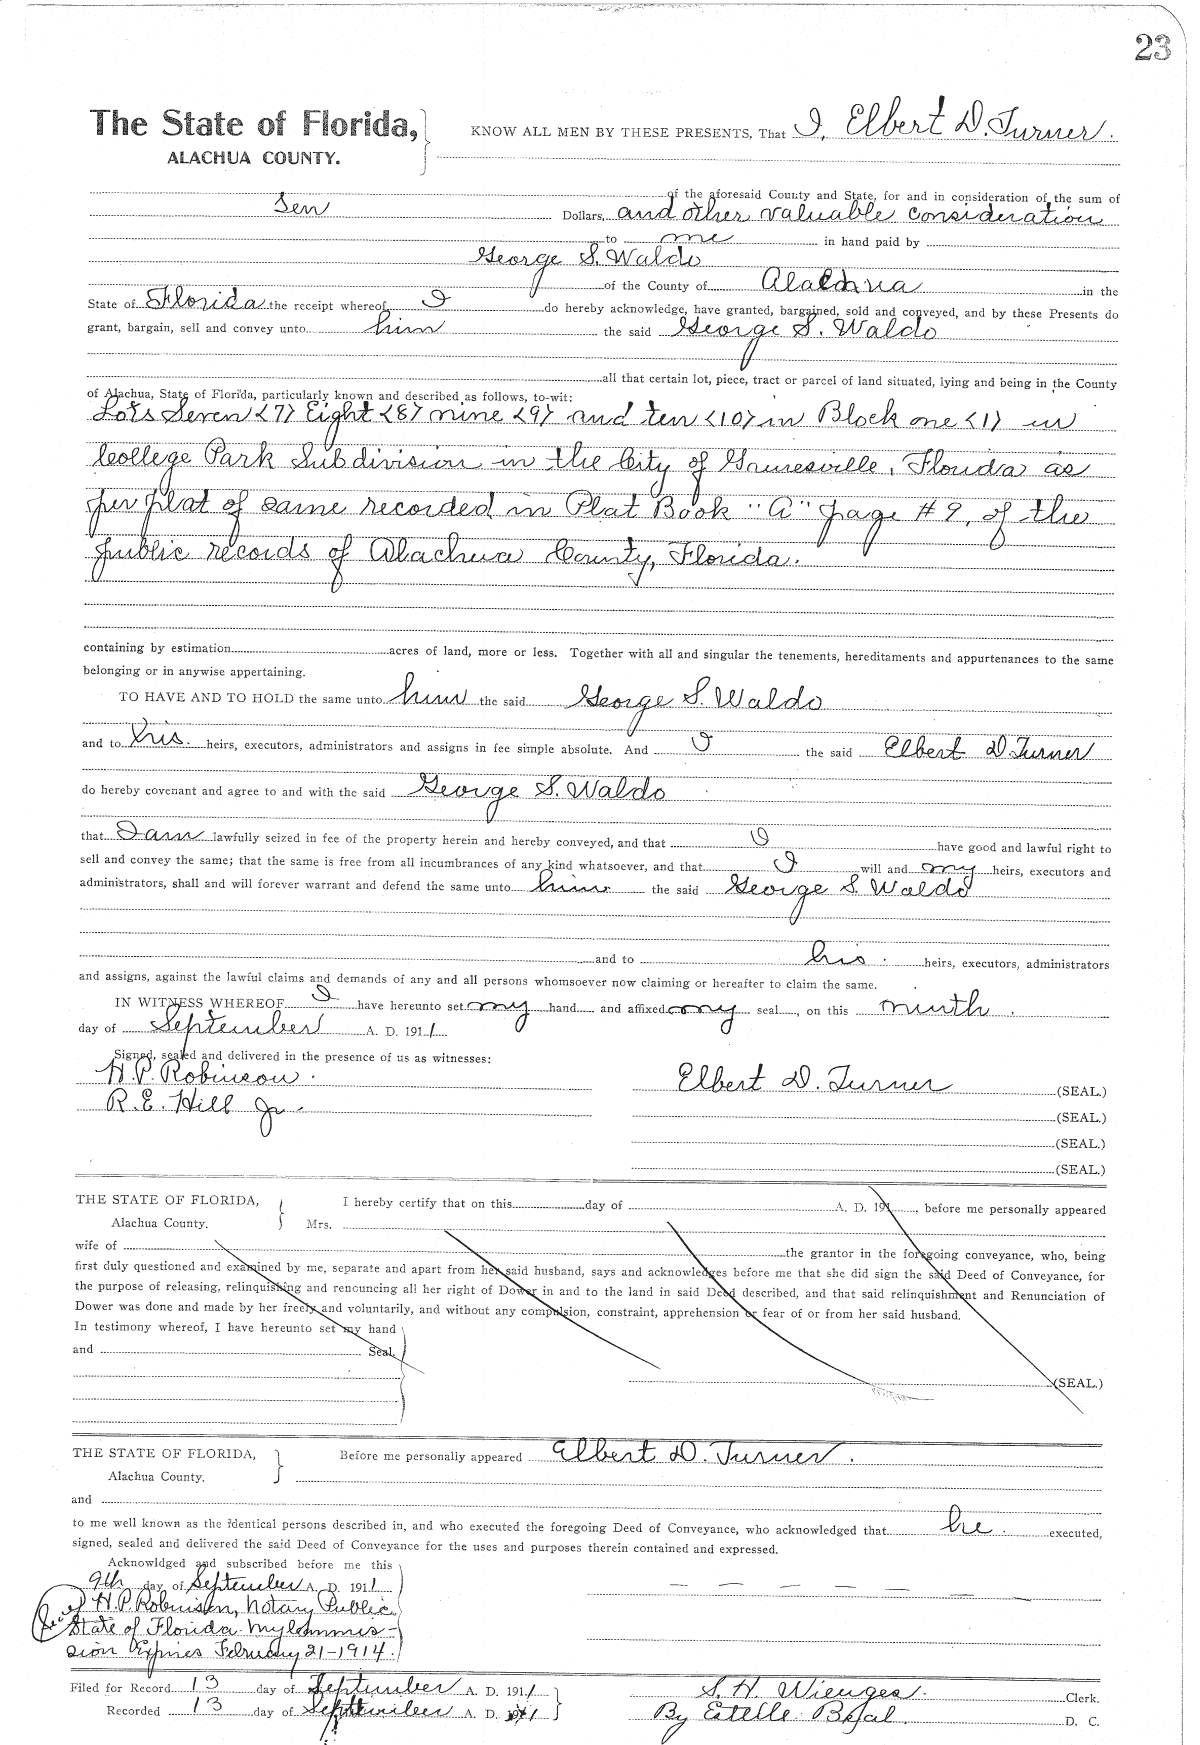 23
The State of Florida,
ALACHUA COUNTY.
KNOW ALL MEN BY THESE PRESENTS, That I, Elbert D. Turner.
of the aforesaid County and State, for and in consideration of the sum of
Ten Dollars, and other valuable consideration
to me in hand paid by
George S. Waldo
of the County of Alachua in the
State of Florida the receipt whereof I do hereby acknowledge, have granted, bargained, sold and conveyed, and by these Presents do
grant, bargain, sell and convey unto him the said George S. Waldo
all that certain lot, piece, tract or parcel of land situated, lying and being in the County
of Alachua, State of Florida, particularly known and described as follows, to-wit:
Lots Seven <7> Eight <8> nine <9> and ten <10> in Block one <1> in
College Park Subdivision in the City of Gainesville, Florida as
per plat of same recorded in Plat Book "A" page # 9, of the
public records of Alachua County, Florida.
containing by estimation acres of land, more or less. Together with all and singular the tenements, hereditaments and appurtenances to the same
belonging or in anywise appertaining.
TO HAVE AND TO HOLD the same unto him the said George S. Waldo
and to his. heirs, executors, administrators and assigns in fee simple absolute. And I the said Elbert D. Turner
do hereby covenant and agree to and with the said George S. Waldo
that I am lawfully seized in fee of the property herein and hereby conveyed, and that I have good and lawful right to
sell and convey the same; that the same is free from all incumbrances of any kind whatsoever, and that I will and my heirs, executors and
administrators, shall and will forever warrant and defend the same unto him the said George S. Waldo
and to his heirs, executors, administrators
and assigns, against the lawful claims and demands of any and all persons whomsoever now claiming or hereafter to claim the same.
IN WITNESS WHEREOF I have hereunto set my hand and affixed my seal, on this ninth
day of September A. D. 1911
Signed, sealed and delivered in the presence of us as witnesses:
H. P. Robinson.
R. E. Hill Jr.
Elbert D. Turner (SEAL.)
(SEAL.)
(SEAL.)
(SEAL.)
THE STATE OF FLORIDA,
Alachua County.
I hereby certify that on this day of A. D. 191 , before me personally appeared
Mrs.
wife of the grantor in the foregoing conveyance, who, being
first duly questioned and examined by me, separate and apart from her said husband, says and acknowledges before me that she did sign the said Deed of Conveyance, for
the purpose of releasing, relinquishing and rencuncing all her right of Dower in and to the land in said Deed described, and that said relinquishment and Renunciation of
Dower was done and made by her freely and voluntarily, and without any compulsion, constraint, apprehension or fear of or from her said husband.
In testimony whereof, I have hereunto set my hand
and Seal.
(SEAL.)
THE STATE OF FLORIDA,
Alachua County.
Before me personally appeared Elbert D. Turner.
and
to me well known as the identical persons described in, and who executed the foregoing Deed of Conveyance, who acknowledged that he executed,
signed, sealed and delivered the said Deed of Conveyance for the uses and purposes therein contained and expressed.
Acknowldged and subscribed before me this
9th day of September A. D. 1911
H. P. Robinson, Notary Public
State of Florida. My Commis-
sion Expires February 21-1914.
Filed for Record 13 day of September A. D. 1911
Recorded 13 day of September A. D. 1911
S. H. Wienges. Clerk.
By Estelle D. C.